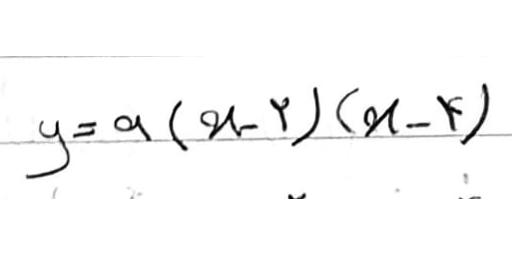 y = a (x - ۲) (x - ۴)